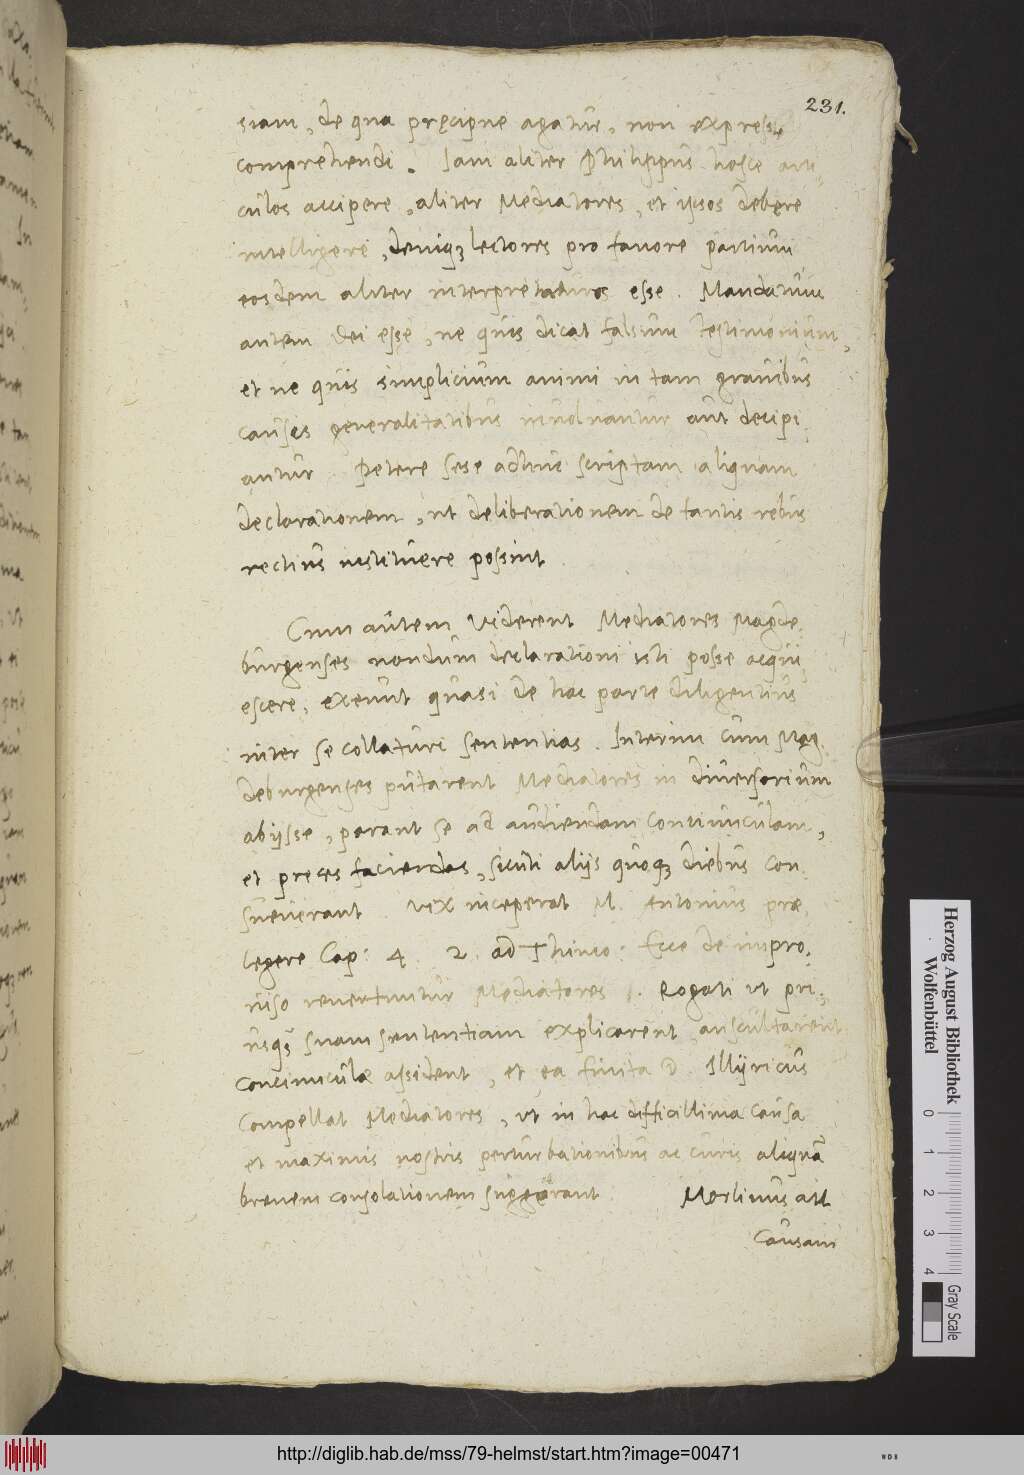 231.
siam, de qua pręcipue agatur, non expresse
comprehendi. Iam aliter Philippus hosce arti-
culos accipere, aliter Mediatores, et ipsos debere
intelligere, deniqꝫ lectores pro favore partium
eosdem aliter interpretaturos esse. Mandatum
autem Dei esse, ne quis dicat falsum testimonium,
et ne quis simplicium animi in tam gravibus
causis generalitatibus involvantur aut decipi-
antur. Petere sese adhuc scriptam aliquam
declarationem, ut deliberationem de tantis rebus
rectius instituere possint.
Cum autem viderent Mediatores Magde-
burgenses nondum declarationi isti posse acqui-
escere, exeunt quasi de hac parte diligentius
inter se collaturi sententias. Interim cum Mag-
deburgenses putarent Mediatores in diversorium
abijsse, parant se ad audiendam contiunculam,
et preces faciendas, sicuti alijs quoqꝫ diebus con-
sueverant. Vix inceperat M. Antonius præ-
legere Cap: 4. 2. ad Thimo: Ecce de impro-
viso revertuntur Mediatores. Rogati ut pri-
usqꝫ suam sententiam explicarent, auscultarent
conciunculæ assident, et ea finita D. Illyricus
compellat Mediatores, ut in hac difficillima causa
et maximis nostris perturbationibus ac curis aliquã
brevem consolationem suggerant. Morlinus ait
Causam
Herzog August Bibliothek
Wolfenbüttel
0 1 2 3 4
Gray Scale
http://diglib.hab.de/mss/79-helmst/start.htm?image=00471